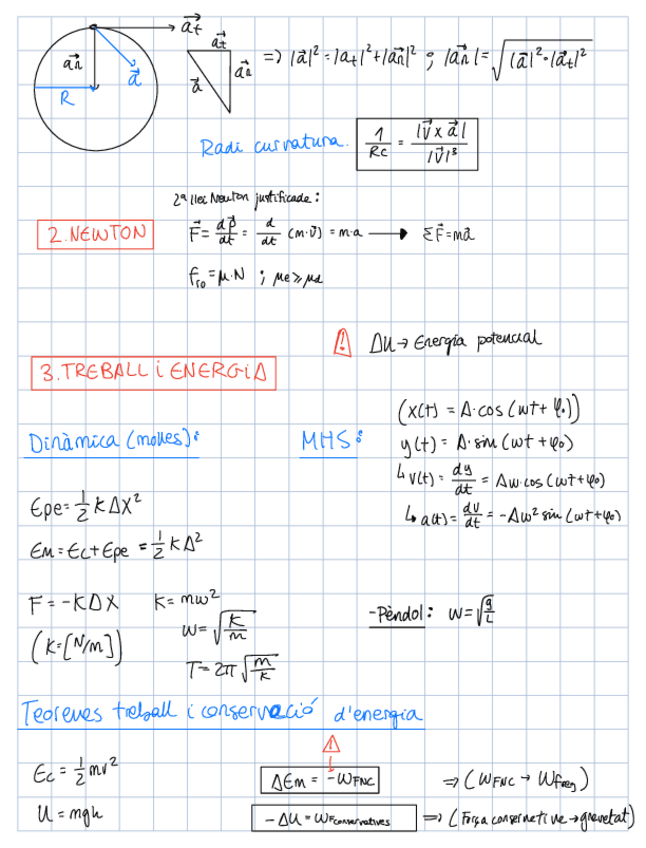 a⃗t
a⃗n
a⃗
R
a⃗t
a⃗n
a⃗
=> |a⃗|² = |at|² + |a⃗n|² ; |a⃗n| = √(|a⃗|² - |a⃗t|²)
Radi curvatura. 1/Rc = |v⃗ x a⃗| / |v⃗|³
2ª llei Newton justificada:
2. NEWTON
F⃗ = dp⃗/dt = d/dt (m·v⃗) = m·a → ΣF⃗ = ma⃗
fro = μ·N ; μe ≥ μd
⚠ ΔU → Energia potencial
3. TREBALL i ENERGIA
Dinàmica (molles):
MHS:
(x(t) = A·cos(wt + φ₀))
y(t) = A·sin(wt + φ₀)
↳ v(t) = dy/dt = Aw·cos(wt + φ₀)
↳ a(t) = dv/dt = -Aw² sin(wt + φ₀)
Epe = 1/2 K Δx²
Em = Ec + Epe = 1/2 K A²
F = -KΔX
K = mw²
(K = [N/m])
w = √(K/m)
T = 2π √(m/K)
- Pèndol: w = √(g/L)
Teoremes treball i conservació d'energia
⚠
Ec = 1/2 mv²
ΔEm = -WFNC => (WFNC → Wfreg)
U = mgh
-ΔU = WFconservatives => (Força conservative → gravetat)